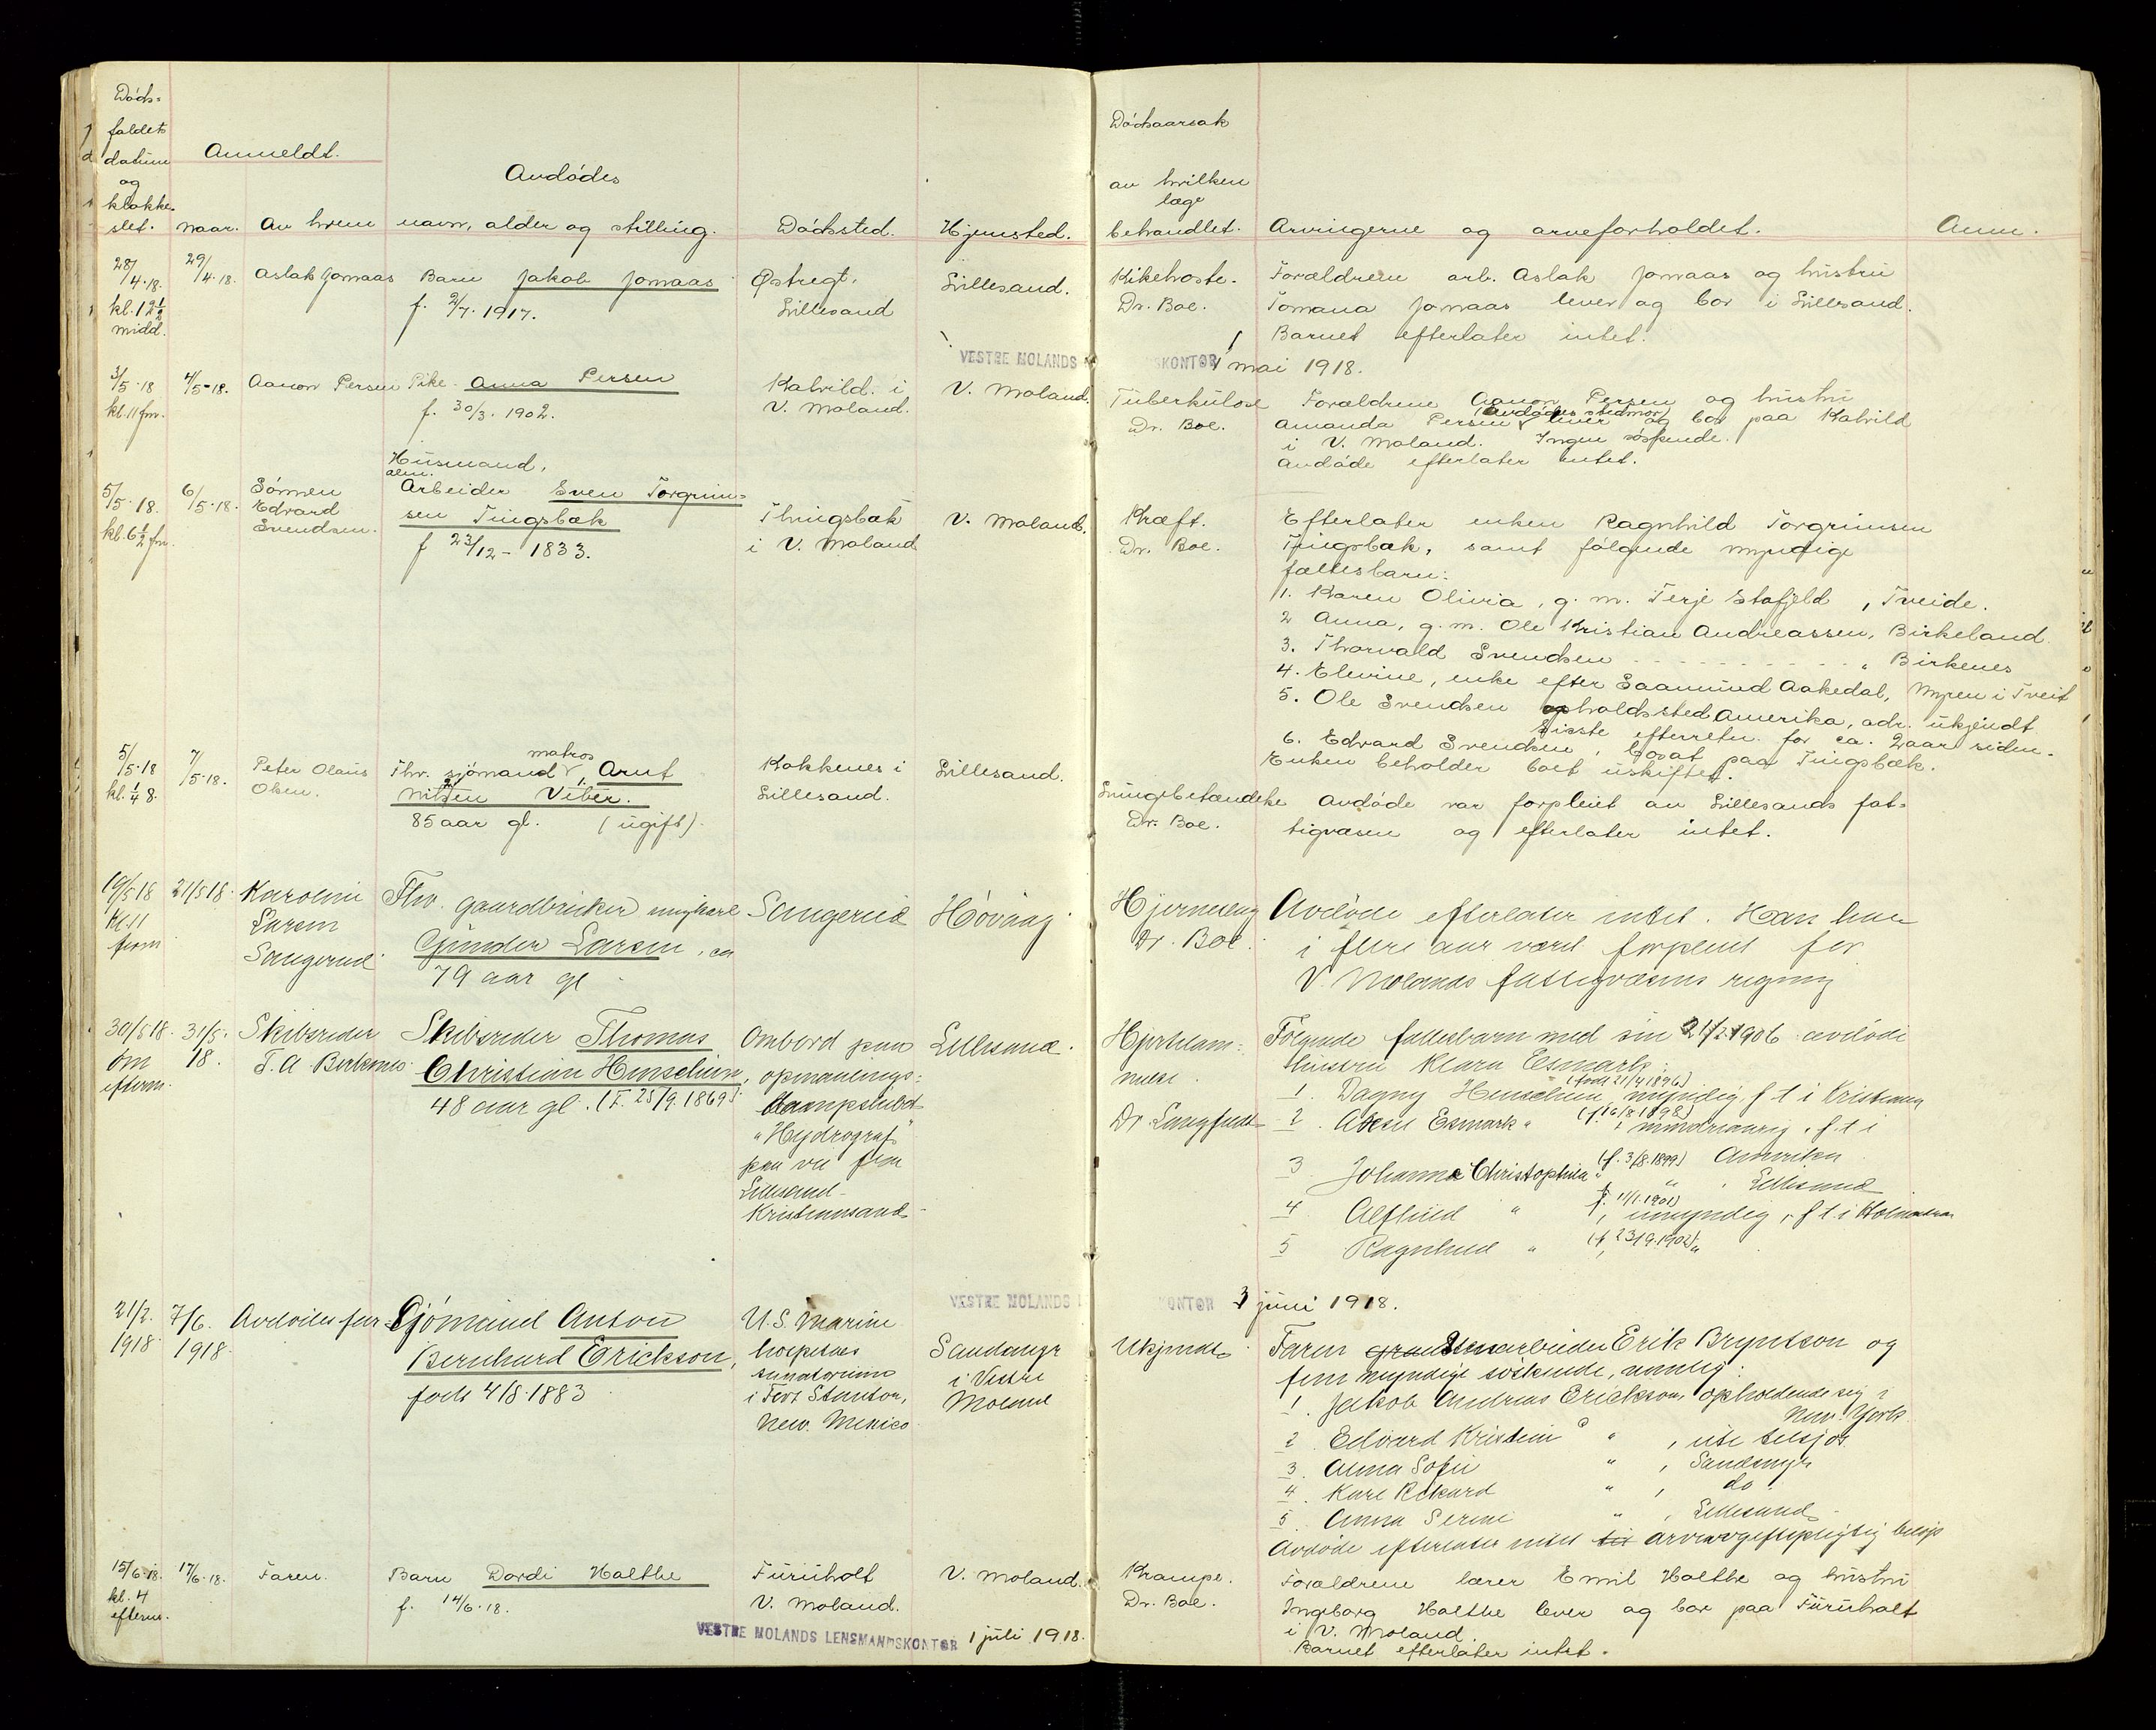 Døds=
faldets
datum
og
klokke-
slet.
Anmeldt.
naar. Av hvem
Avdødes
navn, alder og stilling.
Dødssted.
Hjemsted.
Dødsaarsak
av hvilken
læge
behandlet.
Arvingerne og arveforholdet.
Anm.
28/4.18.
kl. 12½
midd.
29/4.18.
Aslak Jomaas
Barn Jakob Jomaas
f. 2/7.1917.
Østregt.
Lillesand
Lillesand.
Kikhoste.
Dr. Boe.
Forældrene arb. Aslak Jomaas og hustru
Tomana Jomaas lever og bor i Lillesand.
Barnet efterlater intet.
VESTRE MOLANDS
SKONTOR 1 mai 1918.
3/5.18
kl. 11 fm.
4/5-18.
Aanon Persen
Pike Anna Persen
f. 30/3.1902.
Kalvild i
V. Moland.
V. Moland.
Tuberkulose
Dr. Boe.
Forældrene Aanon Persen og hustru
(avdødes stedmor)
Amanda Persen lever og bor paa Kalvild
i V. Moland. Ingen søskende.
Avdøde efterlater intet.
5/5.18.
kl. 6½ fm.
6/5.18.
Sønnen
Edvard
Svendsen.
Husmand,
alm.
Arbeider Sven Torgrim=
sen Tingsbæk
f 23/12-1833.
Thingsbæk
i V. Moland
V. Moland.
Kræft.
Dr. Boe.
Efterlater enken Ragnhild Torgrimsen
Tingsbæk, samt følgende myndige
fællesbarn:
1. Karen Olivia, g. m. Terje Stafjeld, Tveide.
2 Anna, g. m. Ole Kristian Andreassen, Birkeland
3. Thorvald Svendsen - - - - - - - - - - " Birkenes
4. Elevine, enke efter Saamund Aakedal, Myren i Tveit
5. Ole Svendsen opholdssted Amerika, adr. ukjendt
Sidste efterretn. for ca. 2 aar siden.
6. Edvard Svendsen, bosat paa Tingsbæk.
Enken beholder boet uskiftet.
5/5.18
kl. ¼ 8.
7/5.18.
Peter Olaus
Olsen.
matros
Fhv. sjømand, Arnt
Nilsen Viber.
85 aar gl. (ugift).
Kokkenes i
Lillesand.
Lillesand.
Lungebetændelse
Dr. Boe.
Avdøde var forpleiet av Lillesands fat=
tigvæsen og efterlater intet.
19/5 18
Kl. 11
form
21/5 18.
Karoline
Larsen
Sangereid
Fhv. gaardbruker ungkarl
Gunder Larsen, ca
79 aar gl
Sangereid
Høvaag
Dr. Boe.
Avdøde efterlater intet. Han har
i flere aar været forpleiet for
V. Molands fattigvæsens regning
30/5 18.
om
efterm.
31/5.
18.
Skibsreder
T. A. Birkenes
Skibsreder Thomas
Christian Henschien,
48 aar gl. (f. 25/9.1869)
Ombord paa
opmaalings=
dampskibet
"Hydrograf"
paa vei fra
Lillesand-
Kristianssand-
Lillesand.
Hjertelam=
melse.
Følgende fællesbarn med sin 21/2.1906 avdøde
hustru Klara Esmark.
(født 21/4 1896)
1. Dagny Henschien, myndig f t i Kristiania
(f. 16/8 1898)
2. Aksel Esmark " , mindreaarig, f. t i
Amerika
(f. 3/8.1899)
3 Johanna Christophia " , " , Lillesand
(f. 11/1.1901)
4 Alfhild " , umyndig, f t. i Holmestrand
(f. 23/9.1902)
5 Ragnhild " , "
VESTRE MOLANDS
KONTOR 3 juni 1918.
21/2.
1918
7/6.
1918
Avdødes far
Sjømand Anton
Bernhard Erickson,
født 4/8.1883
U.S. Marine
hospitals
sanatorium
i Fort Stanton,
New. Mexico
Sandmyr
i Vestre
Moland
Ukjendt
Faren Stenarbeider Erik Bryntson og
fem myndige søskende, nemlig:
1. Jakob Andreas Erickson, opholdende sig i
New. York.
2. Edvard Kristian " , ute tilsjøs
3. Alma Sofie " , Sandmyr
4. Karl Rikard " , do
5. Anna Serine " , Lillesand
Avdøde efterlater intet til arveavgiftspligtig beløp
15/6.18.
kl. 4
efterm.
17/6.18.
Faren.
Barn Dordi Holthe
f. 14/6.18.
Furuholt
V. Moland.
V. Moland.
Krampe.
Dr. Boe.
Forældrene lærer Emil Holthe og hustru
Ingeborg Holthe lever og bor paa Furuholt
i V. Moland.
Barnet efterlater intet.
VESTRE MOLANDS LENSMANDSKONTOR 1 juli 1918.